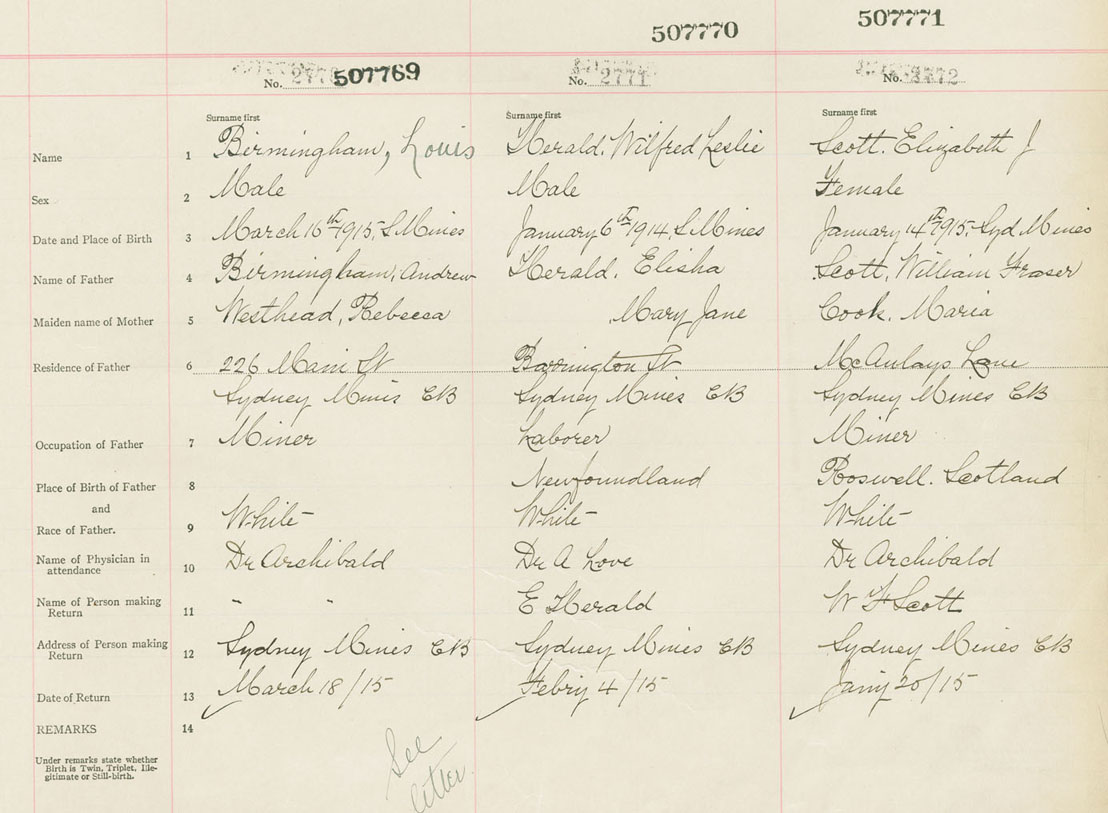 507770 507771
No. 507769 No. 2771 No. 2772
Surname first Surname first Surname first
Name 1 Birmingham, Louis Herald. Wilfred Leslie Scott. Elizabeth J
Sex 2 Male Male Female
Date and Place of Birth 3 March 16th 1915, S Mines January 6th 1914, S Mines January 14th 1915, Syd. Mines
Name of Father 4 Birmingham, Andrew Herald. Elisha Scott, William Fraser
Maiden name of Mother 5 Westhead, Rebecca Mary Jane Cook. Maria
Residence of Father 6 226 Main St Barrington St McAulays Lane
Sydney Mines CB Sydney Mines CB Sydney Mines CB
Occupation of Father 7 Miner Laborer Miner
Place of Birth of Father 8 Newfoundland Roswell. Scotland
and
Race of Father. 9 White White White
Name of Physician in attendance 10 Dr Archibald Dr A Love Dr Archibald
Name of Person making Return 11 " " E Herald W F Scott
Address of Person making Return 12 Sydney Mines CB Sydney Mines CB Sydney Mines CB
Date of Return 13 March 18/15 Febry 4/15 Jany 20/15
REMARKS 14
Under remarks state whether
Birth is Twin, Triplet, Ille-
gitimate or Still-birth.
See
letter